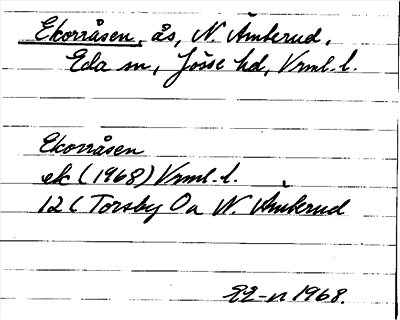 Ekorråsen, ås, N. Åmberud,
Eda sn, Jösse hd, Vrml. l.
Ekorråsen
ek (1968) Vrml. l.
12 C Torsby Oa N. Åmberud
1968.